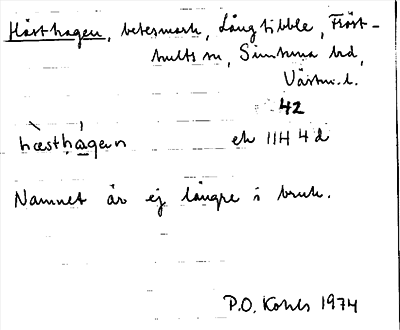 Hästhagen, betesmark, Långtibble, Fröst-
hults sn, Simtuna hd,
Västm. l.
42
hæsthágen ek 11H 4d
Namnet är ej längre i bruk.
P.O. Kohls 1974